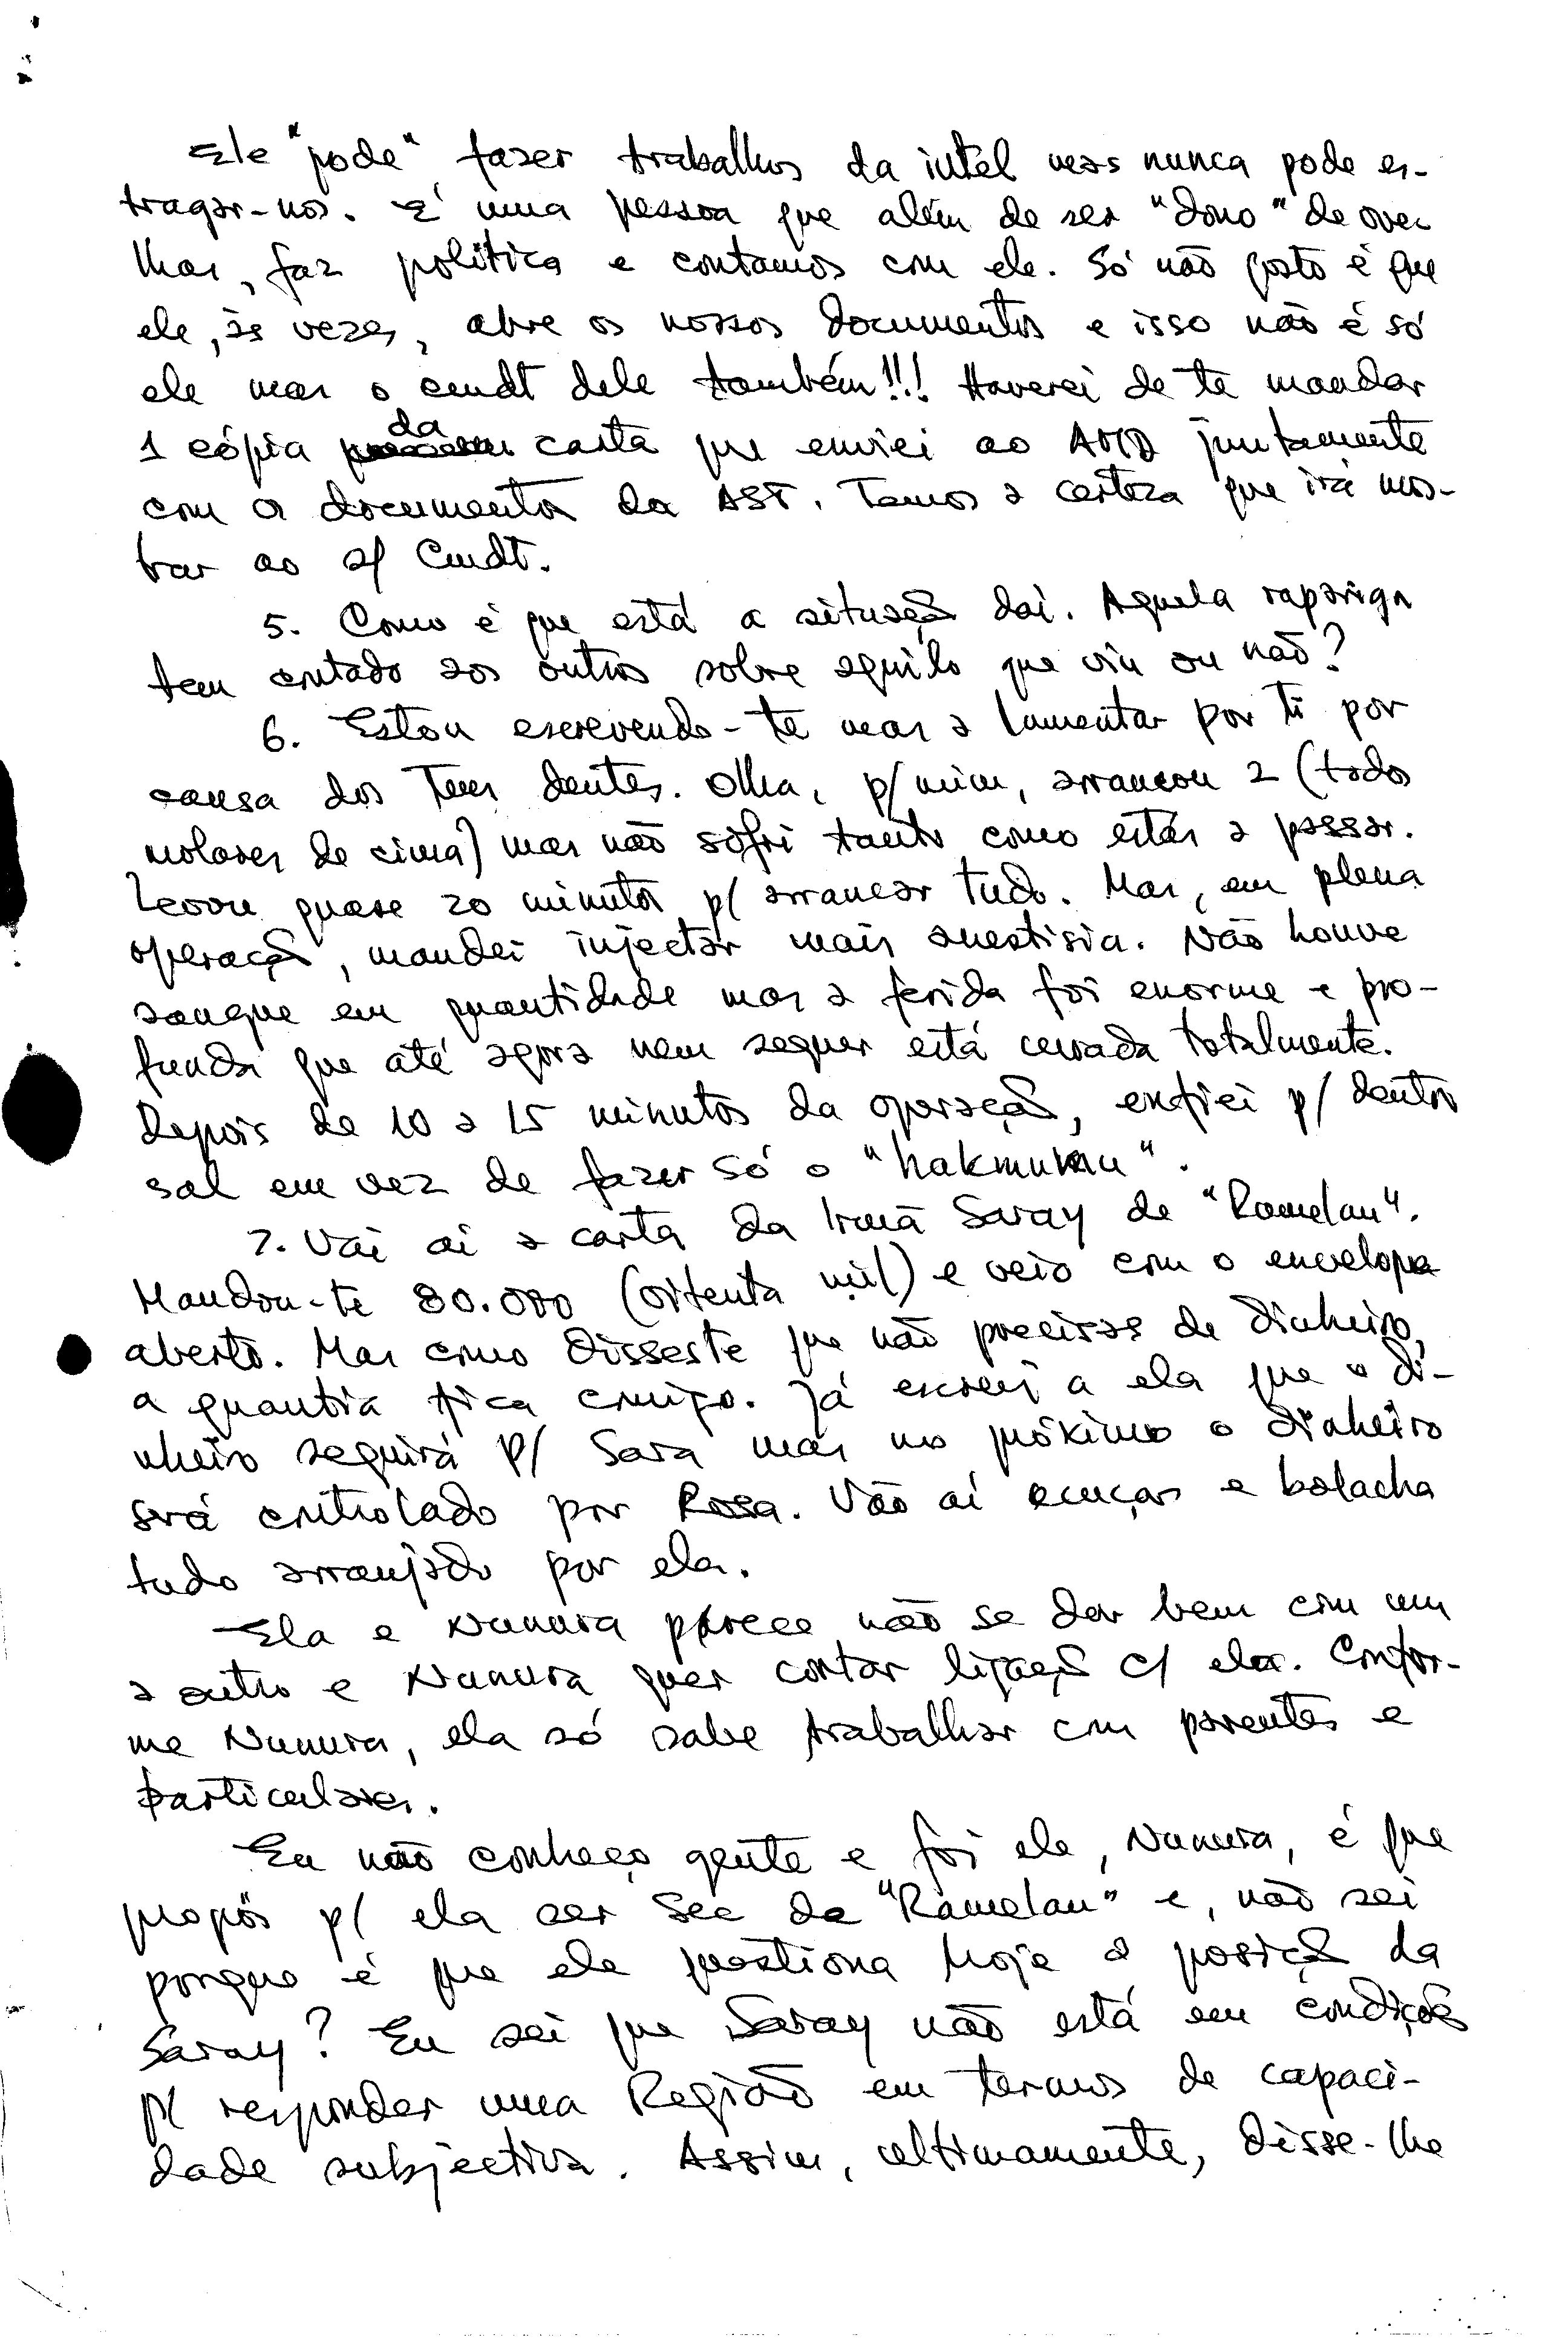 Ele "pode" fazer trabalhos da intel mas nunca pode es-
tragar-nos. É uma pessoa que além de ser "dono" de ove
lhas, faz política e contamos com ele. Só não gosto é que
ele, às vezes, abre os nossos documentos e isso não é só
ele mas o cmdt dele também!!! Haverei de te mandar
1 cópia da carta que enviei ao juntamente
com os documentos da AST. Temos a certeza que irá mos-
trar ao s/ Cmdt.
5. Como é que está a situação daí. Aquela rapariga
tem contado aos outros sobre aquilo que viu ou não?
6. Estou escrevendo-te mas a lamentar por ti por
causa dos teus dentes. Olha, p/ mim, arrancou 2 (todos
molares de cima) mas não sofri tanto como estás a passar.
Levou quase 20 minutos p/ arrancar tudo. Mas, em plena
operação, mandei injectar mais anestisia. Não houve
sangue em quantidade mas a ferida foi enorme e pro-
funda que até agora nem sequer está cerrada totalmente.
Depois de 10 a 15 minutos da operação, enfiei p/ dentro
sal em vez de fazer só o "hakmumu".
7. Vai aí a carta da Irmã Saray de "Ramelau".
Mandou-te 80.000 (oitenta mil) e veio com o envelope
aberto. Mas como disseste que não precisas de dinheiro,
a quantia fica comigo. Já escrevi a ela que o di-
nheiro seguirá p/ Sara mas no próximo o dinheiro
será controlado por Rosa. Vão aí acuçar e bolacha
tudo arranjado por ela.
Ela e Nunura parece não se dar bem com um
a outro e Nunura quer cortar ligação c/ ela. Confor-
me Nunura, ela só sabe trabalhar com parentes e
particulares.
Eu não conheço gente e foi ele, Nunura, é que
propôs p/ ela ser Sec de "Ramelau" e, não sei
porque é que ele questiona hoje a posição da
Saray? Eu sei que Saray não está em condições
p/ responder uma Região em termos de capaci-
dade subjectiva. Assim, ultimamente, disse-lhe